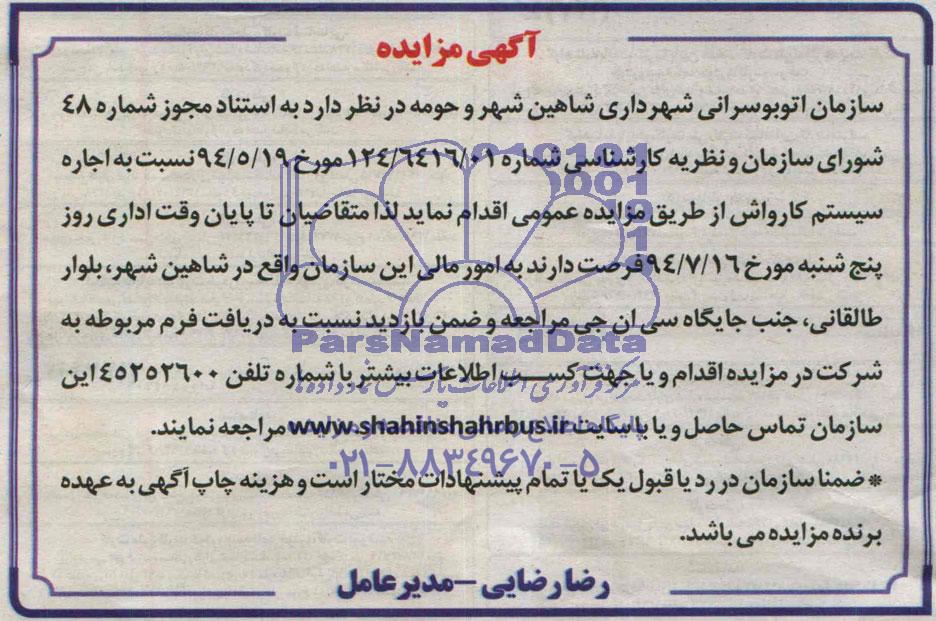 آگهی مزایده
سازمان اتوبوسرانی شهرداری شاهین شهر و حومه در نظر دارد به استناد مجوز شماره ٤٨
شورای سازمان و نظریه کارشناسی شماره ١٢٤/٦٤١٦/٠١ مورخ ٩٤/٥/١٩ نسبت به اجاره
سیستم کارواش از طریق مزایده عمومی اقدام نماید لذا متقاضیان تا پایان وقت اداری روز
پنج شنبه مورخ ٩٤/٧/١٦ فرصت دارند به امور مالی این سازمان واقع در شاهین شهر، بلوار
طالقانی، جنب جایگاه سی ان جی مراجعه و ضمن بازدید نسبت به دریافت فرم مربوطه به
ParsNamadData
شرکت در مزایده اقدام و یا جهت کسب اطلاعات بیشتر با شماره تلفن ٤٥٢٥٢٦٠٠ این
سازمان تماس حاصل و یا با سایت www.shahinshahrbus.ir مراجعه نمایند.
٠٢١-٨٨٣٤٩٦٧٠-٥
* ضمنا سازمان در رد یا قبول یک یا تمام پیشنهادات مختار است و هزینه چاپ آگهی به عهده
برنده مزایده می باشد.
رضا رضایی - مدیر عامل